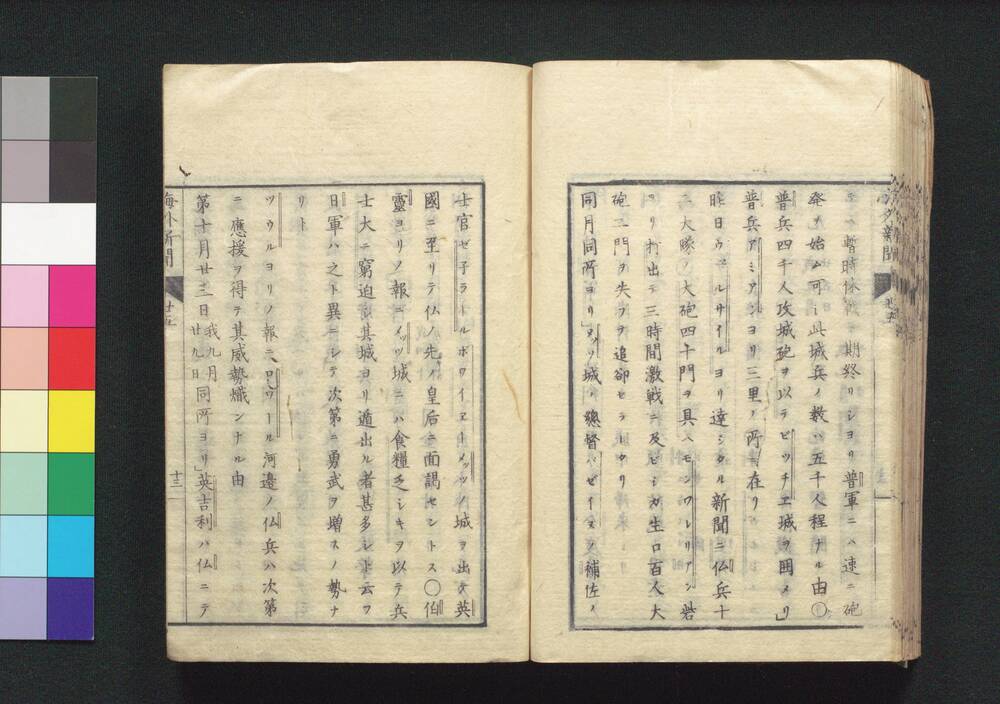 海外新聞
暫時休戦ノ期終リシヨリ普軍ニハ速ニ砲
発ヲ始ム可シ此城兵ノ数ハ五千人程ナル由〇
普兵四千人攻城砲ヲ以テビッチエ城ヲ囲メリ」
普兵アミアンヨリ三里ノ所ニ在リ
昨日ウェルサイルヨリ達シタル新聞ニ仏兵十
二大隊ノ大砲四十門ヲ具ヘモンワレリアン砦
ヨリ打出テ三時間激戦ニ及ビシガ生口百人大
砲二門ヲ失フテ追却セラレタリ
同月同所ヨリ」メッツ城ノ總督バゼイヌヲ補佐ノ
士官ゼ子ラールボワイエートメッツノ城ヲ出テ英
國ニ至リテ仏ノ先ノ皇后ニ面謁セントス〇伯
靈ヨリノ報ニメッツ城ニハ食糧乏シキヲ以テ兵
士大ニ窮迫シ其城ヨリ遁出ル者甚多シト云フ
日軍ハ之ト異ニシテ次第ニ勇武ヲ増スノ勢ナ
リト
ツウルヨリノ報ニロワール河邉ノ仏兵ハ次第
ニ應援ヲ得テ其威勢熾ンナル由
第十月廿三日我九月廿九日同所ヨリ」英吉利ハ仏ニテ
海外新聞 廿五 十三